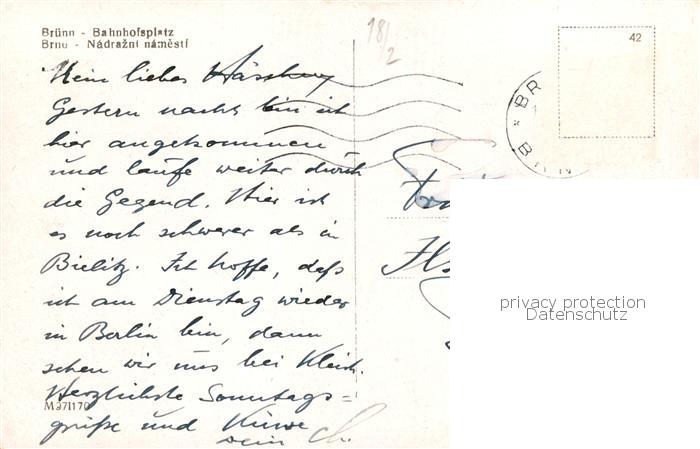 Brünn - Bahnhofsplatz
Brno - Nádražní náměstí
18/2
42
Mein liebes
Gestern nachts bin ich
hier angekommen
und laufe weiter durch
die Gegend. Hier ist
es noch schwerer als in
Bielitz. Ich hoffe, daß
ich am Dienstag wieder
in Berlin bin, dann
sehen wir uns bei
Herzlichste Sonntags=
M 371170
grüße und Küsse
dein Ch.
privacy protection
Datenschutz